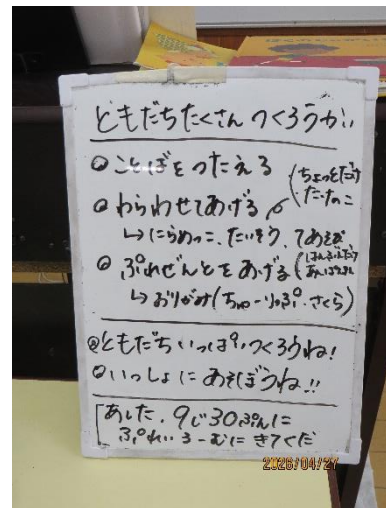 ともだちたくさんつくろうかい
ことばをつたえる
わらわせてあげる
ちょっとだけ
たけのこ
↳にらめっこ、たいそう、てあそび
ぷれぜんとをあげる
↳おりがみ(ちゅーりっぷ・さくら)
ともだちいっぱいつくろうね!
いっしょにあそぼうね!!
あした、9じ30ぷんに
ぷれいるーむにきてくだ
2026/04/27